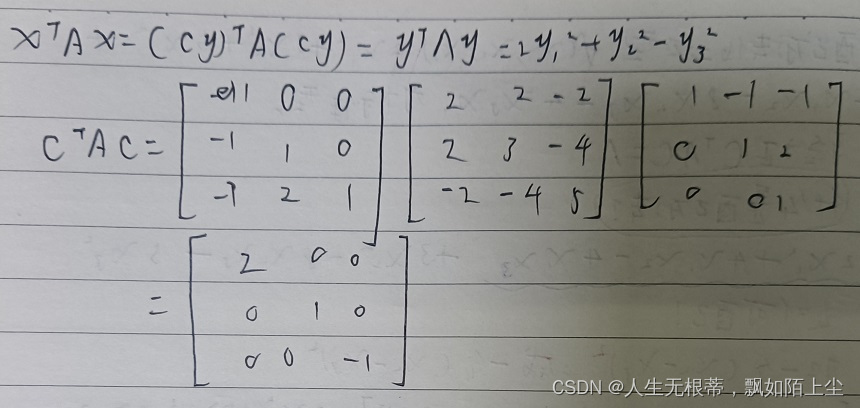 xᵀAx = (Cy)ᵀA(Cy) = yᵀΛy = 2y₁² + y₂² - y₃²
CᵀAC = [1 0 0; -1 1 0; -1 2 1] [2 2 -2; 2 3 -4; -2 -4 5] [1 -1 -1; 0 1 2; 0 0 1]
= [2 0 0; 0 1 0; 0 0 -1]
CSDN @人生无根蒂，飘如陌上尘